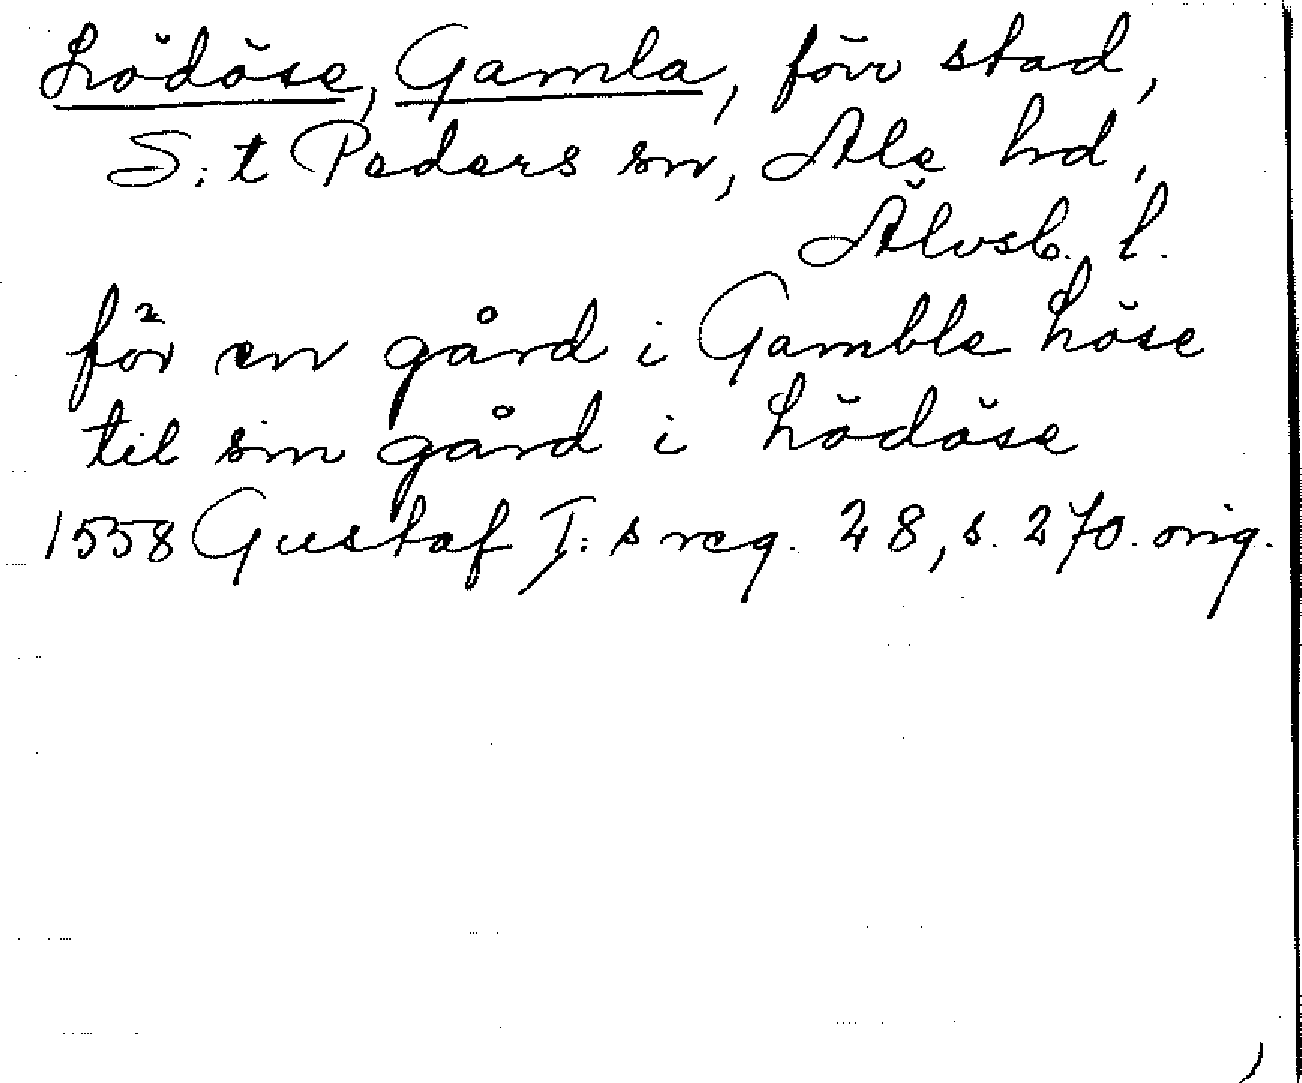 Lödöse, Gamla, förr stad,
S:t Peders sn, Ale hd,
Älvsb. l.
för en gård i Gamble Löse
til sin gård i Lödöse
1558 Gustaf I:s reg. 28, s. 270. orig.